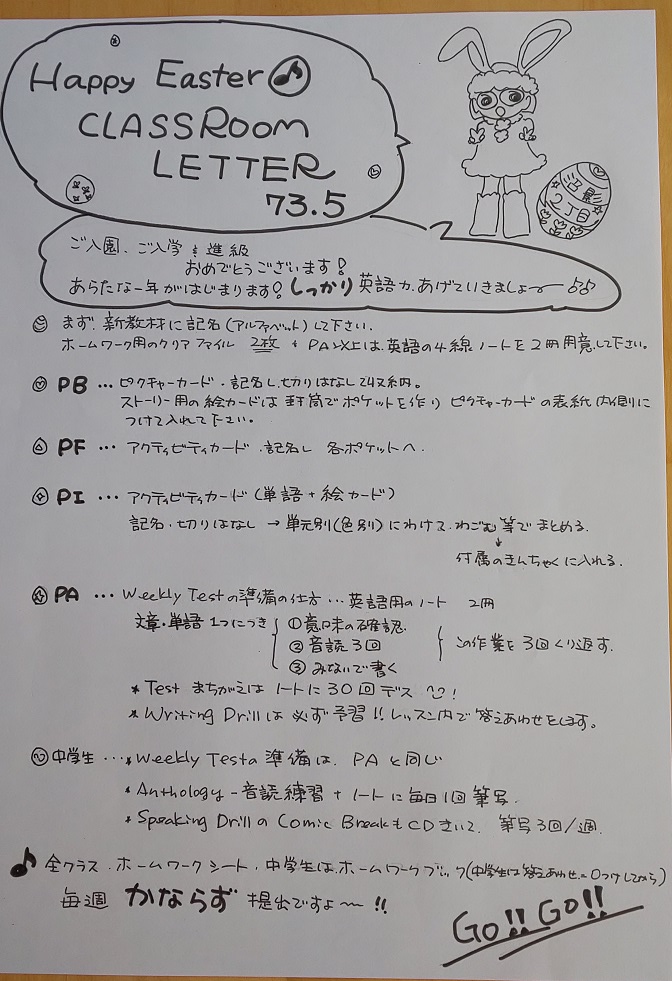 Happy Easter♪
CLASSROOM
LETTER
73.5
沼影
2丁目
ご入園、ご入学&進級
おめでとうございます!
あらたな一年がはじまります! しっかり英語力、あげていきましょー
まず、新教材に記名(アルファベット)して下さい.
ホームワーク用のクリアファイル 2枚 + PA以上は、英語の4線ノートを2冊用意して下さい。
PB … ピクチャーカード・記名し、切りはなして
ストーリー用の絵カードは封筒でポケットを作り ピクチャーカードの表紙内側に
つけて入れて下さい。
PF … アクティビティカード・記名し 各ポケットへ.
PI … アクティビティカード(単語+絵カード)
記名・切りはなし → 単元別(色別)にわけて、わごむ等でまとめる.
↓
付属のきんちゃくに入れる.
PA … Weekly Testの準備の仕方…英語用のノート 2冊
文章・単語 1つにつき
①意味の確認.
②音読3回
③みないで書く
この作業を3回くり返す.
* Test まちがえは ノートに30回デス !
* Writing Drillは必ず予習!! レッスン内で答えあわせをします。
中学生 … * Weekly Testの準備は、PAと同じ
* Anthology - 音読練習 + ノートに毎日1回筆写.
* Speaking Drillの Comic BreakもCDきいて、筆写3回/週.
♪ 全クラス・ホームワークシート・中学生は、ホームワークブック(中学生は答えあわせ、〇つけしてから)
毎週 かならず 提出ですよ〜!!
GO!! GO!!